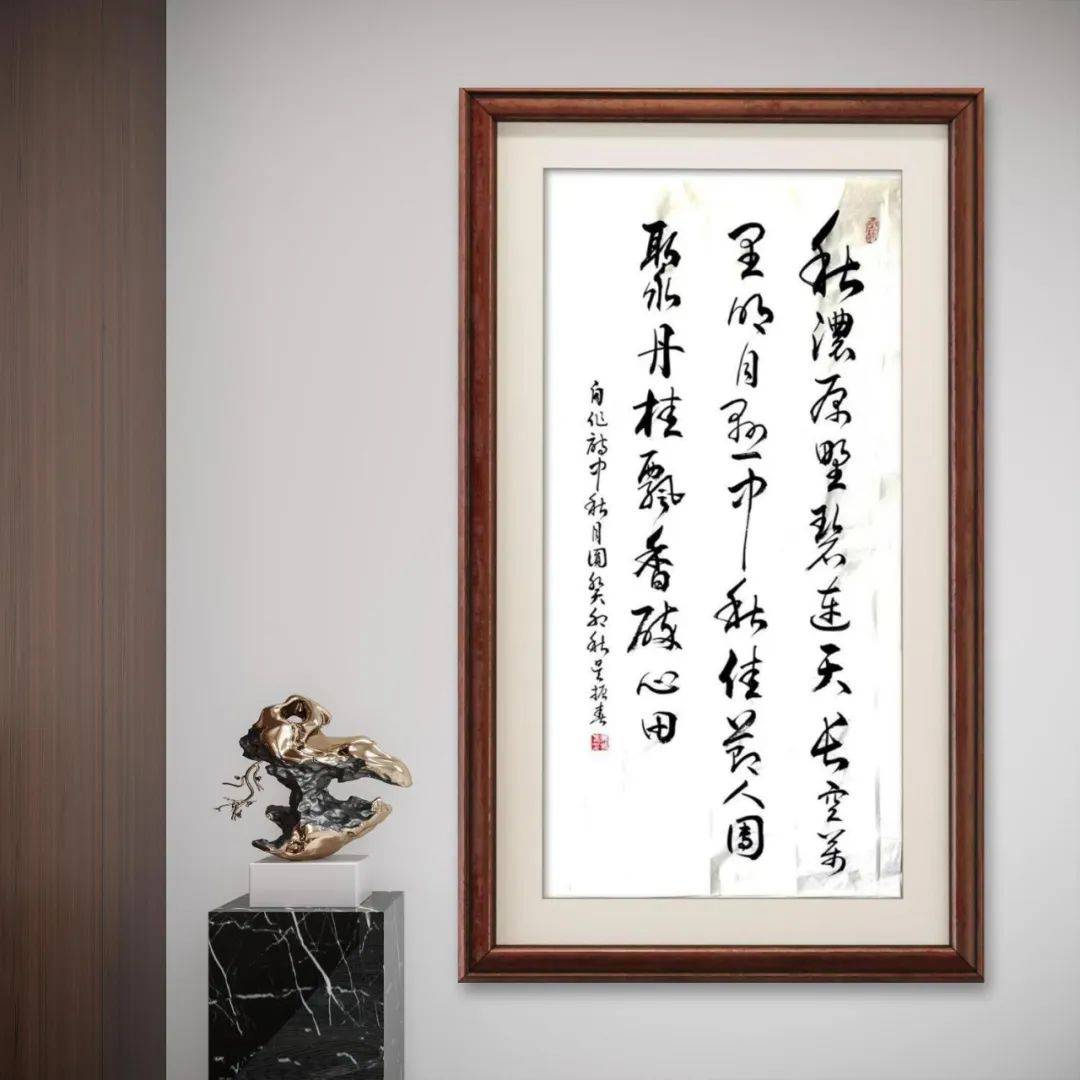 秋濃原野碧連天長空萬
里明月懸中秋佳節人團
聚丹桂飄香醉心田
自作詩中秋月圓癸卯秋吴振春